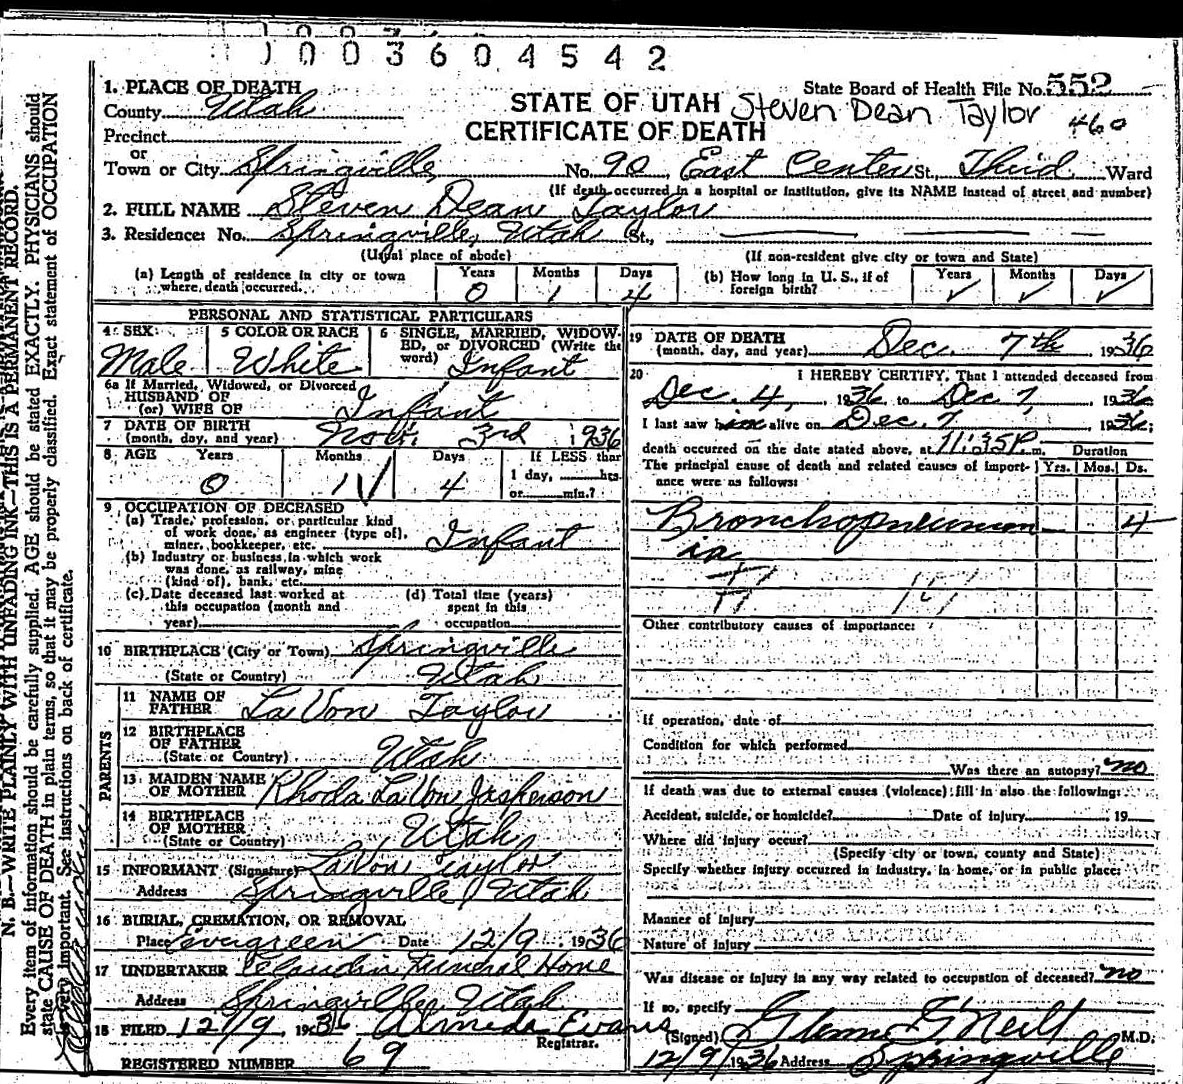 1003604542
State Board of Health File No. 552
1. PLACE OF DEATH
County Utah
STATE OF UTAH Steven Dean Taylor 460
CERTIFICATE OF DEATH
Precinct
or
Town or City Springville, No. 90 East Center St, Third Ward
(If death occurred in a hospital or institution, give its NAME instead of street and number)
2. FULL NAME Steven Dean Taylor
3. Residence: No. Springville, Utah St.,
(Usual place of abode) (If non-resident give city or town and State)
(a) Length of residence in city or town where death occurred. Years 0 Months 1 Days 4
(b) How long in U. S., if of foreign birth? Years ✓ Months ✓ Days ✓
PERSONAL AND STATISTICAL PARTICULARS
4 SEX Male
5 COLOR OR RACE White
6 SINGLE, MARRIED, WIDOW-
ED, or DIVORCED (Write the
word) Infant
6a If Married, Widowed, or Divorced
HUSBAND OF
(or) WIFE OF Infant
7 DATE OF BIRTH
(month, day, and year) Nov. 3rd 1936
8 AGE Years 0 Months 1 Days 4 If LESS than
1 day, hrs.
or min.?
9 OCCUPATION OF DECEASED
(a) Trade, profession, or particular kind
of work done, as engineer (type of),
miner, bookkeeper, etc. Infant
(b) Industry or business in which work
was done, as railway, mine
(kind of), bank, etc.
(c) Date deceased last worked at
this occupation (month and
year)
(d) Total time (years)
spent in this
occupation
10 BIRTHPLACE (City or Town) Springville
(State or Country) Utah
PARENTS
11 NAME OF
FATHER LaVon Taylor
12 BIRTHPLACE
OF FATHER
(State or Country) Utah
13 MAIDEN NAME
OF MOTHER Rhoda LaVon Jasperson
14 BIRTHPLACE
OF MOTHER
(State or Country) Utah
15 INFORMANT (Signature) LaVon Taylor
Address Springville, Utah
16 BURIAL, CREMATION, OR REMOVAL
Place Evergreen Date 12/9 1936
17 UNDERTAKER Funeral Home
Address Springville, Utah
18 FILED 12/9 1936 Almeda Evans
Registrar.
REGISTERED NUMBER 69
19 DATE OF DEATH
(month, day, and year) Dec. 7th 1936
20 I HEREBY CERTIFY, That I attended deceased from
Dec. 4, 1936 to Dec 7, 1936
I last saw him alive on Dec. 7 1936;
death occurred on the date stated above, at 11:35 P. m.
Duration
The principal cause of death and related causes of import-
ance were as follows: Yrs. Mos. Ds.
Bronchopneumon- 4
ia
Other contributory causes of importance:
If operation, date of
Condition for which performed
Was there an autopsy? no
If death was due to external causes (violence) fill in also the following:
Accident, suicide, or homicide? Date of injury 19
Where did injury occur?
(Specify city or town, county and State)
Specify whether injury occurred in industry, in home, or in public place:
Manner of injury
Nature of injury
Was disease or injury in any way related to occupation of deceased? no
If so, specify
(Signed) M.D.
12/9/1936 Address Springville
N. B.—WRITE PLAINLY WITH UNFADING INK—THIS IS A PERMANENT RECORD.
Every item of information should be carefully supplied. AGE should be stated EXACTLY. PHYSICIANS should
state CAUSE OF DEATH in plain terms, so that it may be properly classified. Exact statement of OCCUPATION
is very important. See instructions on back of certificate.